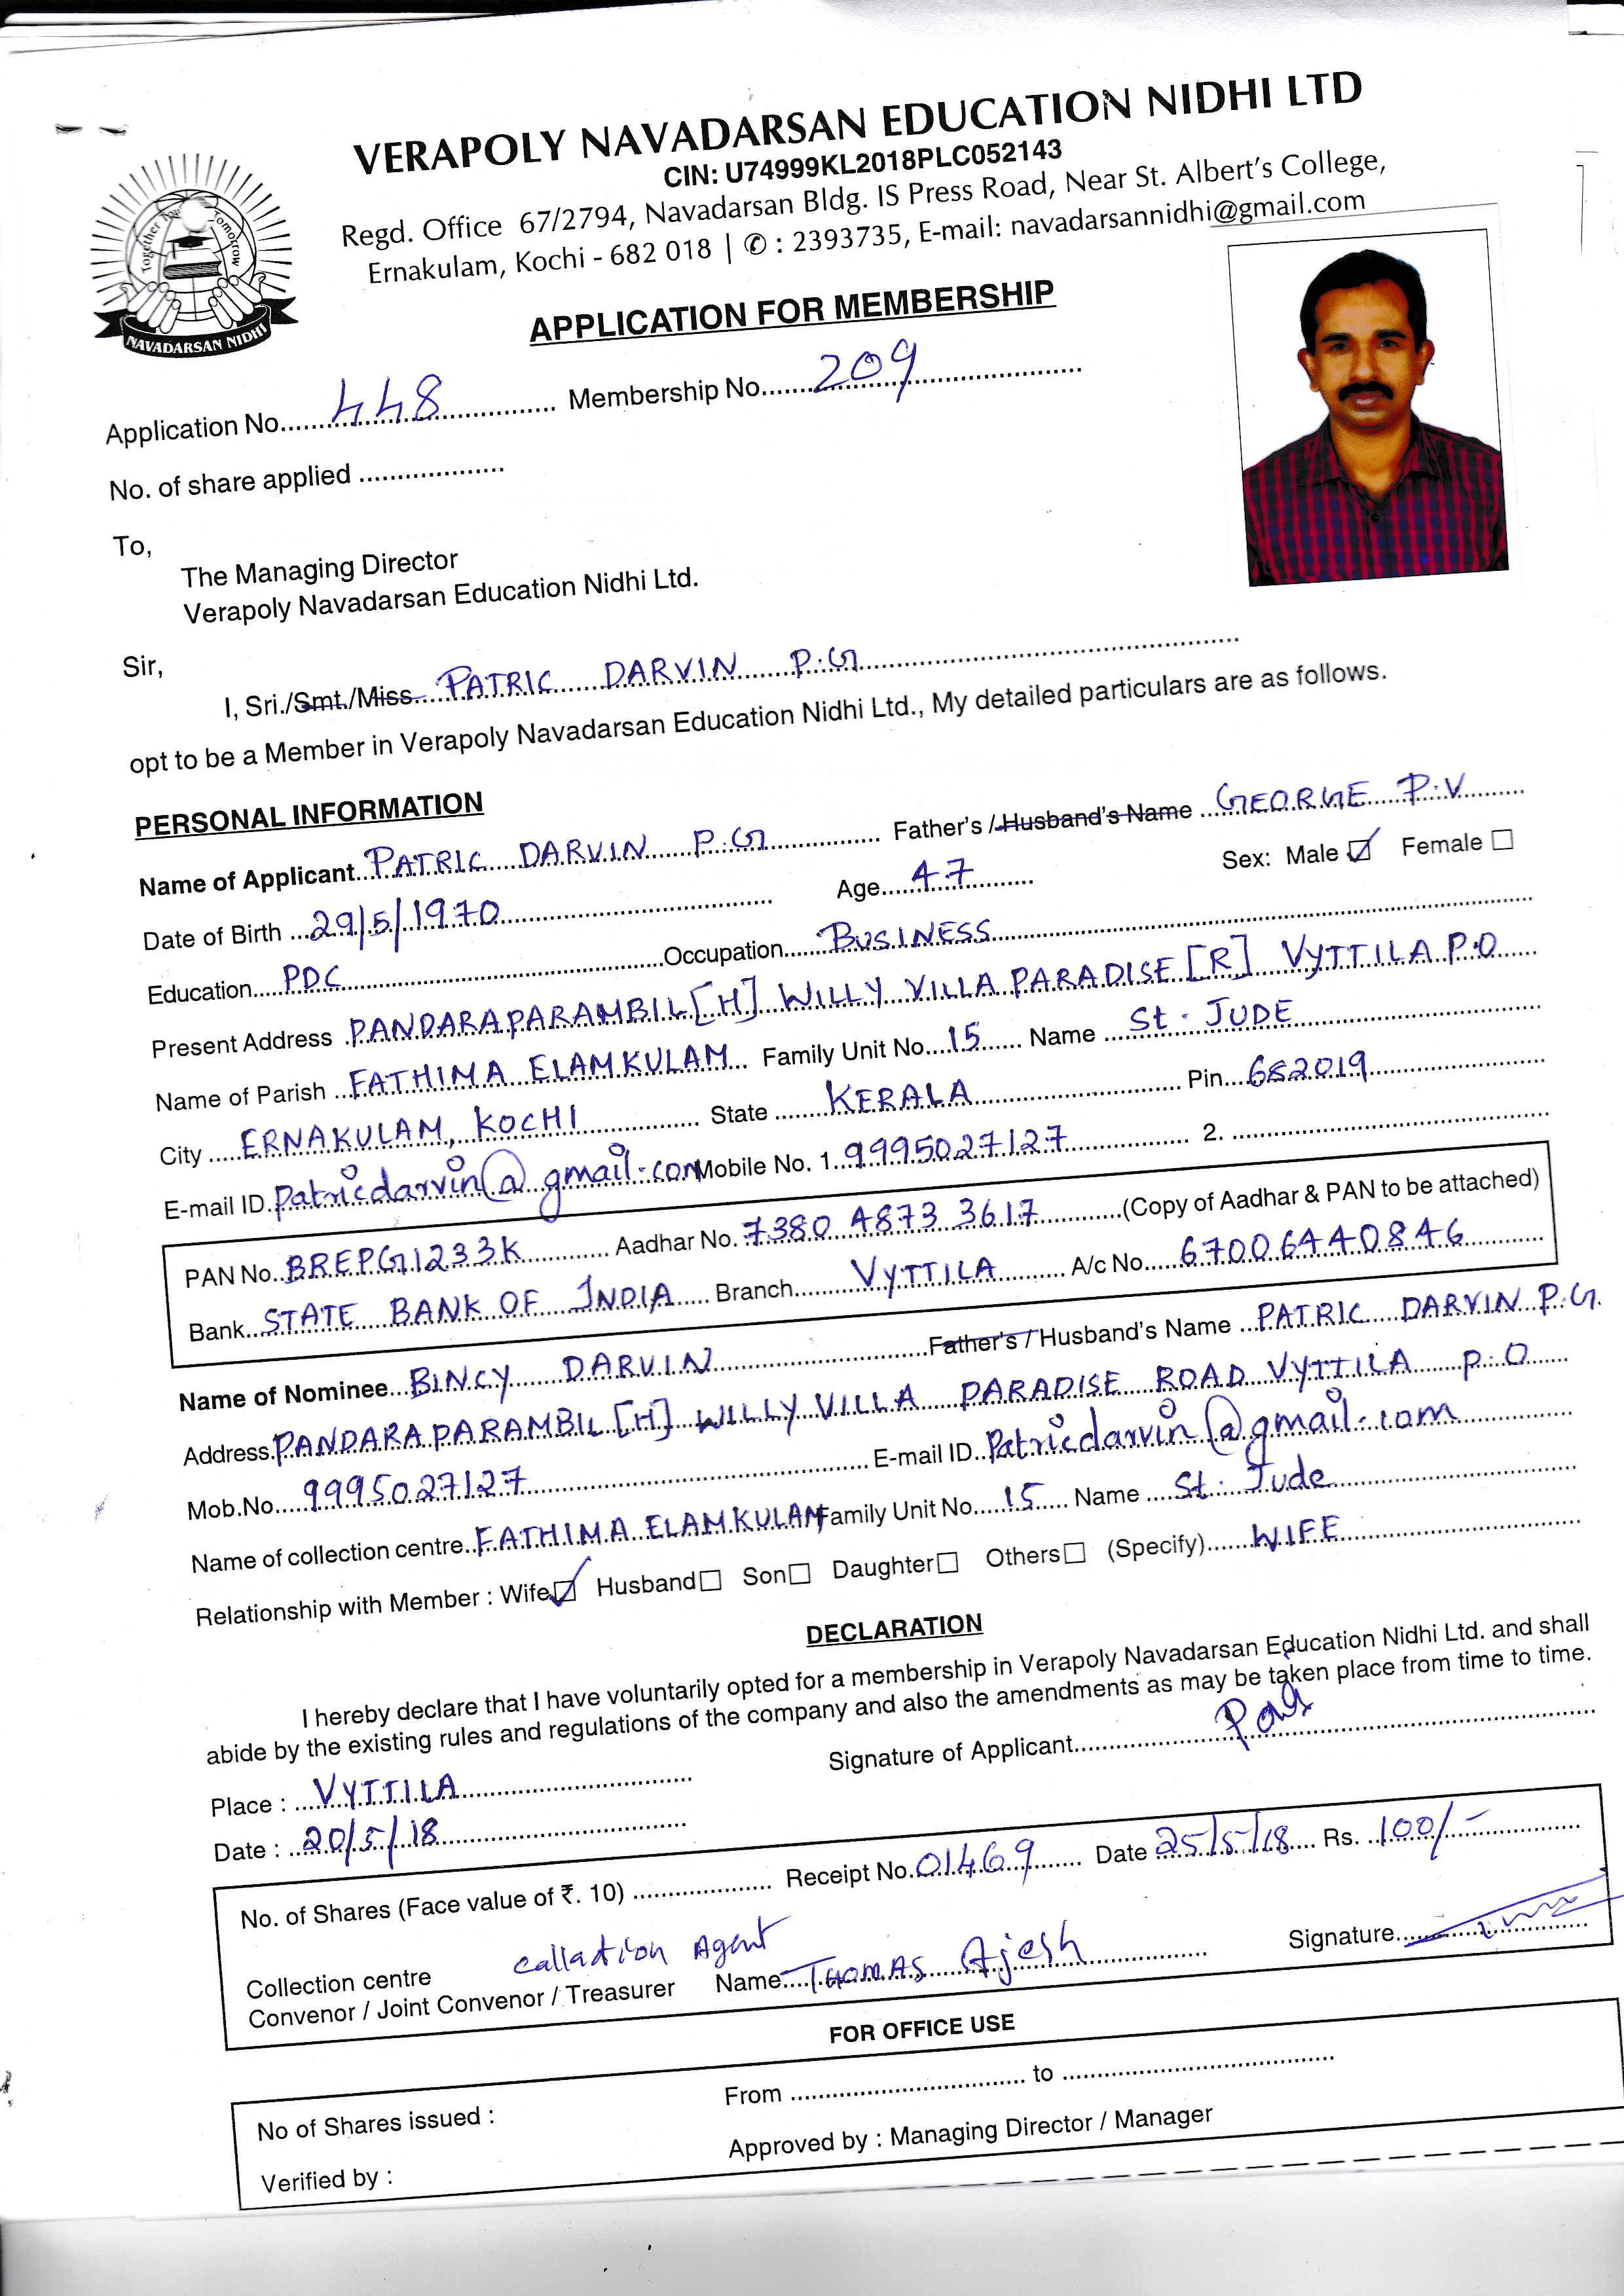 VERAPOLY NAVADARSAN EDUCATION NIDHI LTD
CIN: U74999KL2018PLC052143
Regd. Office 67/2794, Navadarsan Bldg. IS Press Road, Near St. Albert's College,
Ernakulam, Kochi - 682 018 | ✆ : 2393735, E-mail: navadarsannidhi@gmail.com
Together For Tomorrow
NAVADARSAN NIDHI
APPLICATION FOR MEMBERSHIP
Application No. 448 Membership No. 209
No. of share applied
To,
The Managing Director
Verapoly Navadarsan Education Nidhi Ltd.
Sir,
I, Sri./Smt./Miss. PATRIC DARVIN P.G
opt to be a Member in Verapoly Navadarsan Education Nidhi Ltd., My detailed particulars are as follows.
PERSONAL INFORMATION
Name of Applicant PATRIC DARVIN P.G Father's / Husband's Name GEORGE P.V
Date of Birth 29/5/1970 Age 47 Sex: Male ☑ Female ☐
Education PDC Occupation BUSINESS
Present Address PANDARAPARAMBIL [H] WILLY VILLA PARADISE [R] VYTTILA P.O
Name of Parish FATHIMA ELAMKULAM Family Unit No. 15 Name St. JUDE
City ERNAKULAM, KOCHI State KERALA Pin 682019
E-mail ID. Patricdarvin@gmail.com Mobile No. 1. 9995027127 2.
PAN No. BREPG1233K Aadhar No. 7380 4873 3617 (Copy of Aadhar & PAN to be attached)
Bank STATE BANK OF INDIA Branch VYTTILA A/c No. 67006440846
Name of Nominee BINCY DARVIN Father's / Husband's Name PATRIC DARVIN P.G.
Address. PANDARAPARAMBIL [H] WILLY VILLA PARADISE ROAD VYTTILA P.O
Mob.No. 9995027127 E-mail ID. Patricdarvin@gmail.com
Name of collection centre. FATHIMA ELAMKULAM Family Unit No. 15 Name St. Jude
Relationship with Member : Wife ☑ Husband ☐ Son ☐ Daughter ☐ Others ☐ (Specify) WIFE
DECLARATION
I hereby declare that I have voluntarily opted for a membership in Verapoly Navadarsan Education Nidhi Ltd. and shall
abide by the existing rules and regulations of the company and also the amendments as may be taken place from time to time.
Signature of Applicant
Place : VYTTILA
Date : 20/5/18
No. of Shares (Face value of ₹. 10) Receipt No. 01469 Date 25/5/18 Rs. 100/-
Collection centre Agent
Convenor / Joint Convenor / Treasurer Name THOMAS Ajesh Signature
FOR OFFICE USE
No of Shares issued : From to
Verified by : Approved by : Managing Director / Manager